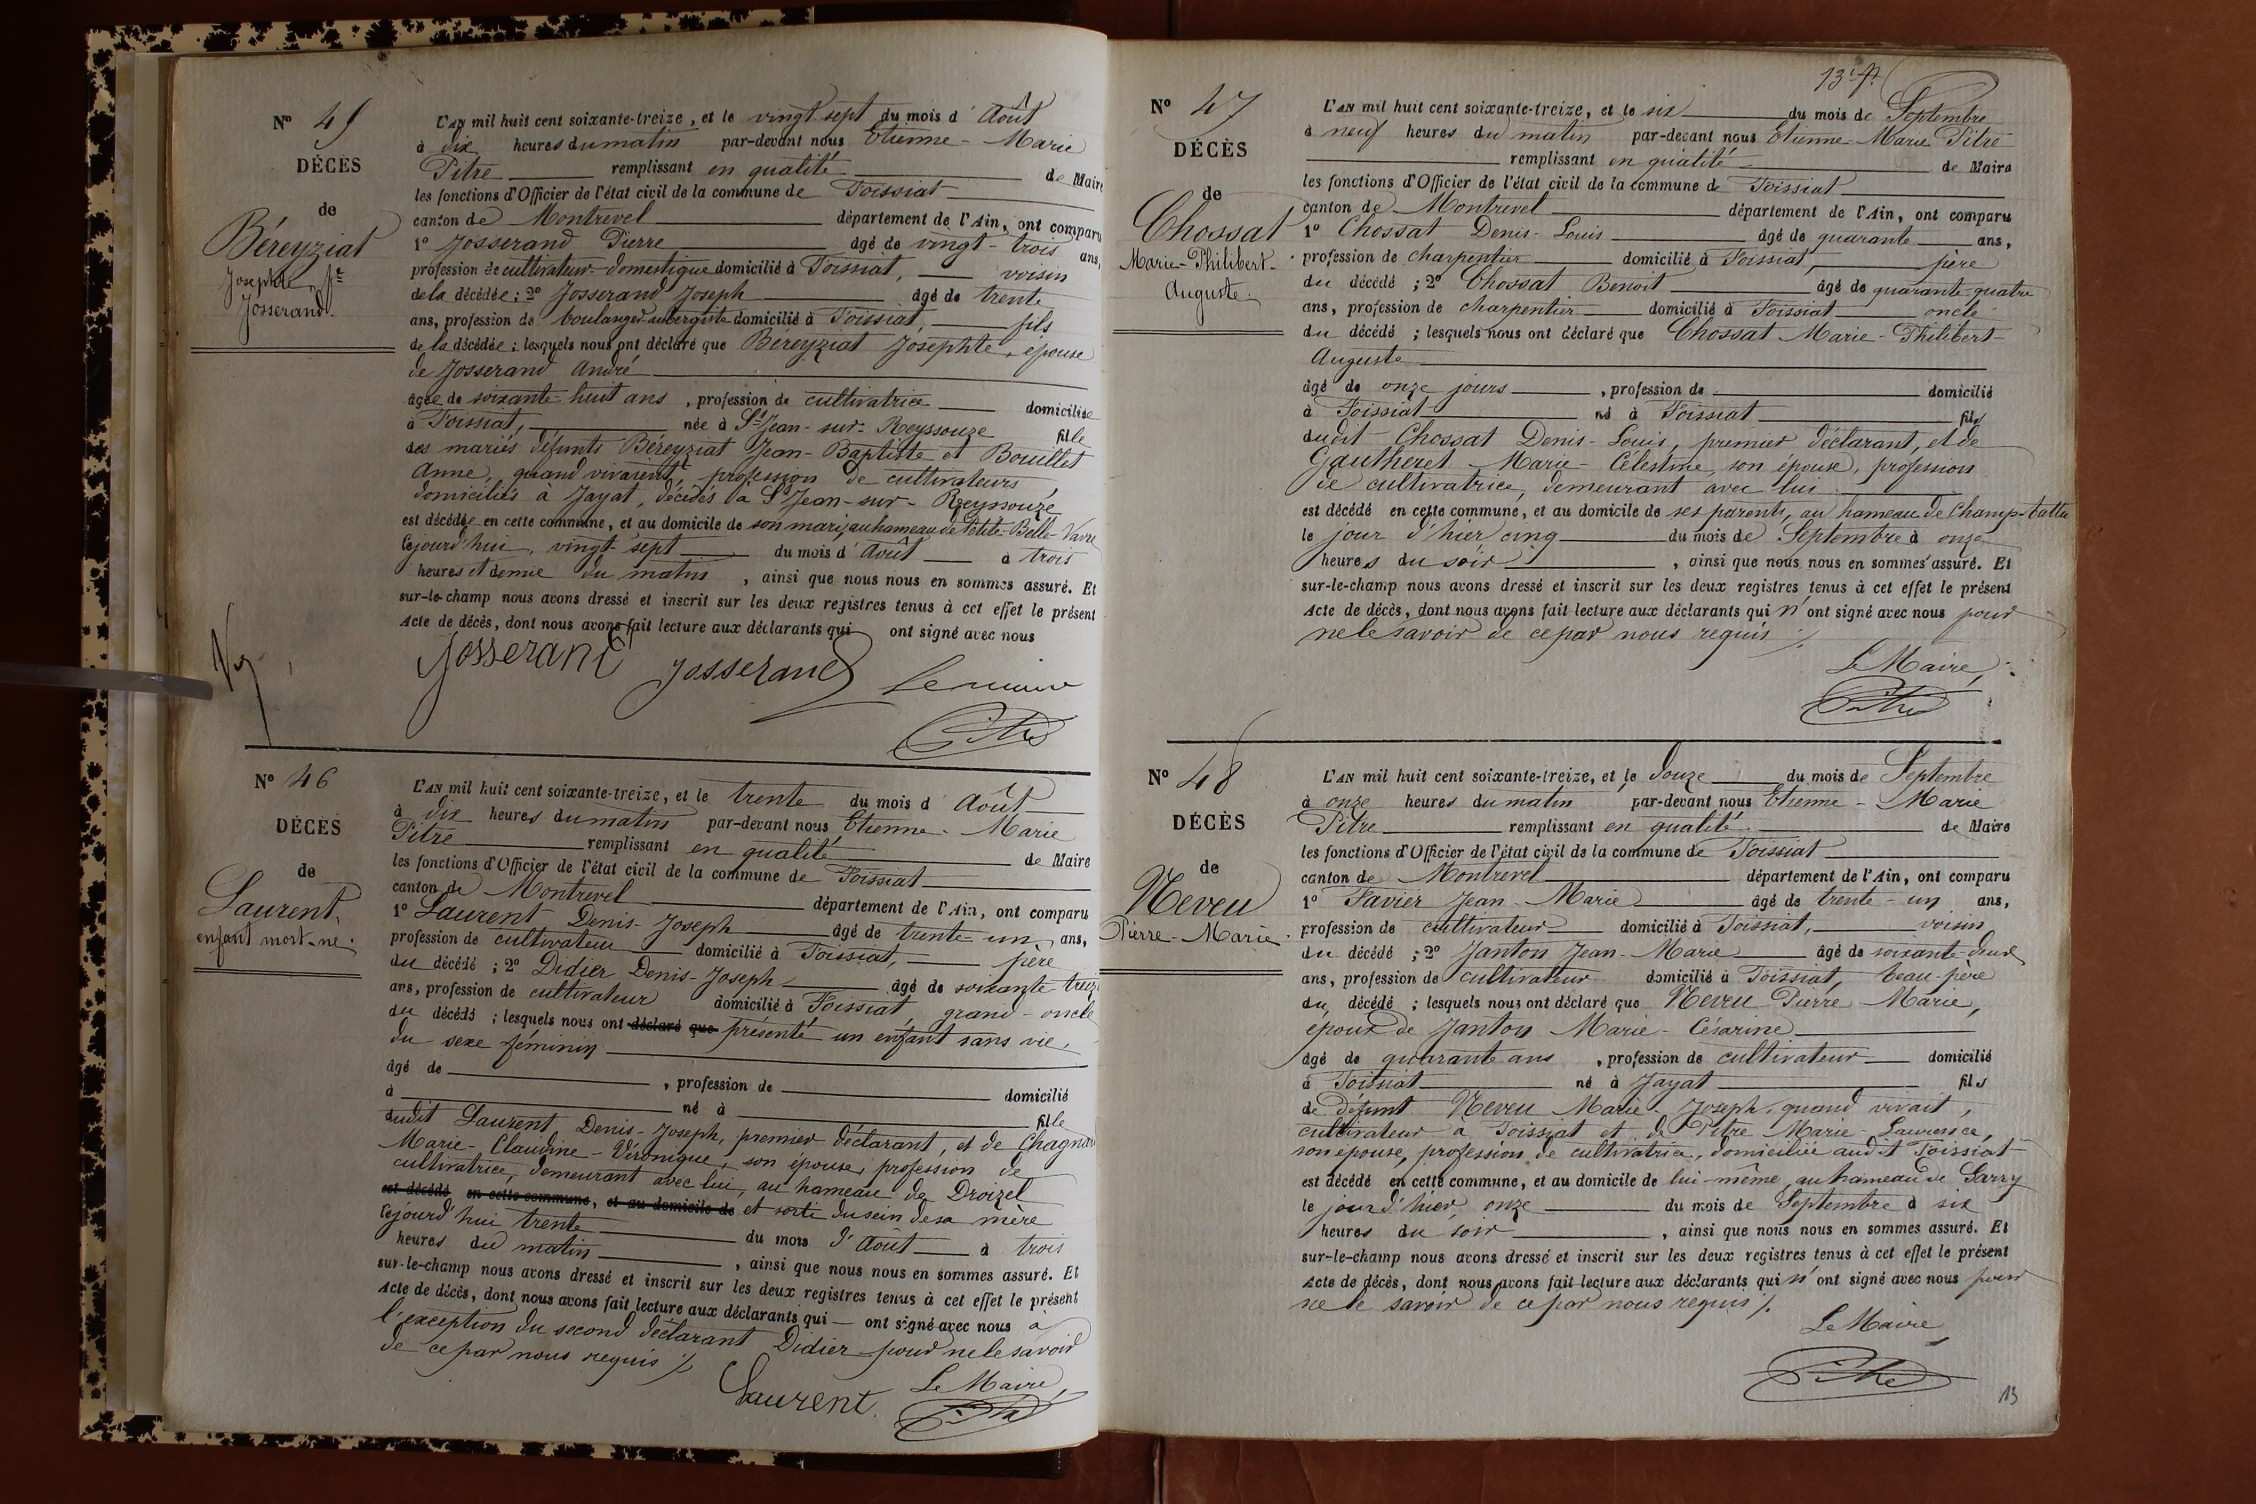 N° 45
DÉCÈS
de
Béreyziat
Josephte, fe
Josserand.
L'AN mil huit cent soixante-treize, et le vingt sept du mois d'Août
à dix heures du matin par-devant nous Etienne-Marie
Pitre remplissant en qualité de Maire
les fonctions d'Officier de l'état civil de la commune de Foissiat
canton de Montrevel département de l'Ain, ont comparu
1° Josserand Pierre âgé de vingt-trois ans,
profession de cultivateur-domestique domicilié à Foissiat, voisin
de la décédée; 2° Josserand Joseph âgé de trente
ans, profession de boulanger-aubergiste domicilié à Foissiat, fils
de la décédée; lesquels nous ont déclaré que Béreyziat Josephte, épouse
de Josserand André
âgée de soixante-huit ans, profession de cultivatrice domiciliée
à Foissiat, née à St Jean-sur-Reyssouze fille
des mariés défunts Béreyziat Jean-Baptiste et Bouillet
Anne, quand vivaient, profession de cultivateurs,
domiciliés à Jayat, décédés à St Jean-sur-Reyssouze
est décédée en cette commune, et au domicile de son mari, au hameau de Petite-Belle-Vavre
cejourd'hui, vingt-sept du mois d'Août à trois
heures et demie du matin, ainsi que nous nous en sommes assuré. Et
sur-le-champ nous avons dressé et inscrit sur les deux registres tenus à cet effet le présent
Acte de décès, dont nous avons fait lecture aux déclarants qui ont signé avec nous
Josserand Josserand Le maire
Pitre
N° 46
DÉCÈS
de
Laurent,
enfant mort-né.
L'AN mil huit cent soixante-treize, et le trente du mois d'Août
à dix heures du matin par-devant nous Etienne-Marie
Pitre remplissant en qualité de Maire
les fonctions d'Officier de l'état civil de la commune de Foissiat
canton de Montrevel département de l'Ain, ont comparu
1° Laurent Denis-Joseph âgé de trente-un ans,
profession de cultivateur domicilié à Foissiat, père
du décédé; 2° Didier Denis-Joseph âgé de soixante treize
ans, profession de cultivateur domicilié à Foissiat, grand-oncle
du décédé; lesquels nous ont déclaré que présenté un enfant sans vie,
du sexe féminin
âgé de , profession de domicilié
à né à fille
dudit Laurent, Denis-Joseph, premier déclarant, et de
Marie-Claudine-Véronique, son épouse, profession de
cultivatrice, demeurant avec lui, au hameau de Droizel
est décédé en cette commune, et au domicile de et sortie du sein de sa mère
cejourd'hui trente du mois d'Août à trois
heures du matin, ainsi que nous nous en sommes assuré. Et
sur-le-champ nous avons dressé et inscrit sur les deux registres tenus à cet effet le présent
Acte de décès, dont nous avons fait lecture aux déclarants qui ont signé avec nous à
l'exception du second déclarant Didier pour ne le savoir
de ce par nous requis ./.
Laurent. Le Maire,
Pitre
13e f.
N° 47
DÉCÈS
de
Chossat
Marie-Philibert-
Auguste.
L'AN mil huit cent soixante-treize, et le six du mois de Septembre
à neuf heures du matin par-devant nous Etienne-Marie Pitre
remplissant en qualité de Maire
les fonctions d'Officier de l'état civil de la commune de Foissiat
canton de Montrevel département de l'Ain, ont comparu
1° Chossat Denis-Louis âgé de quarante ans,
profession de charpentier domicilié à Foissiat, père
du décédé; 2° Chossat Benoit âgé de quarante-quatre
ans, profession de charpentier domicilié à Foissiat oncle
du décédé; lesquels nous ont déclaré que Chossat Marie-Philibert-
Auguste
âgé de onze jours, profession de domicilié
à Foissiat né à Foissiat fils
dudit Chossat Denis-Louis, premier déclarant, et de
Gautheret Marie-Célestine, son épouse, profession
de cultivatrice, demeurant avec lui
est décédé en cette commune, et au domicile de ses parents, au hameau de
le jour d'hier cinq du mois de Septembre à onze
heures du soir, ainsi que nous nous en sommes assuré. Et
sur-le-champ nous avons dressé et inscrit sur les deux registres tenus à cet effet le présent
Acte de décès, dont nous avons fait lecture aux déclarants qui n'ont signé avec nous pour
ne le savoir de ce par nous requis ./.
Le Maire,
Pitre
N° 48
DÉCÈS
de
Neveu
Pierre-Marie.
L'AN mil huit cent soixante-treize, et le douze du mois de Septembre
à onze heures du matin par-devant nous Etienne-Marie
Pitre remplissant en qualité de Maire
les fonctions d'Officier de l'état civil de la commune de Foissiat
canton de Montrevel département de l'Ain, ont comparu
1° Favier Jean-Marie âgé de trente-un ans,
profession de cultivateur domicilié à Foissiat, voisin
du décédé; 2° Janton Jean-Marie âgé de soixante-deux
ans, profession de cultivateur domicilié à Foissiat, beau-père
du décédé; lesquels nous ont déclaré que Neveu Pierre Marie,
époux de Janton Marie-Césarine
âgé de quarante ans, profession de cultivateur domicilié
à Foissiat né à Jayat fils
de défunt Neveu Marie-Joseph, quand vivait,
cultivateur à Foissiat et de Pitre Marie-Laurence,
son épouse, profession de cultivatrice, domiciliée audit Foissiat
est décédé en cette commune, et au domicile de lui-même, au hameau de Sarry
le jour d'hier onze du mois de Septembre à six
heures du soir, ainsi que nous nous en sommes assuré. Et
sur-le-champ nous avons dressé et inscrit sur les deux registres tenus à cet effet le présent
Acte de décès, dont nous avons fait lecture aux déclarants qui n'ont signé avec nous pour
ne le savoir de ce par nous requis ./.
Le Maire,
Pitre
13